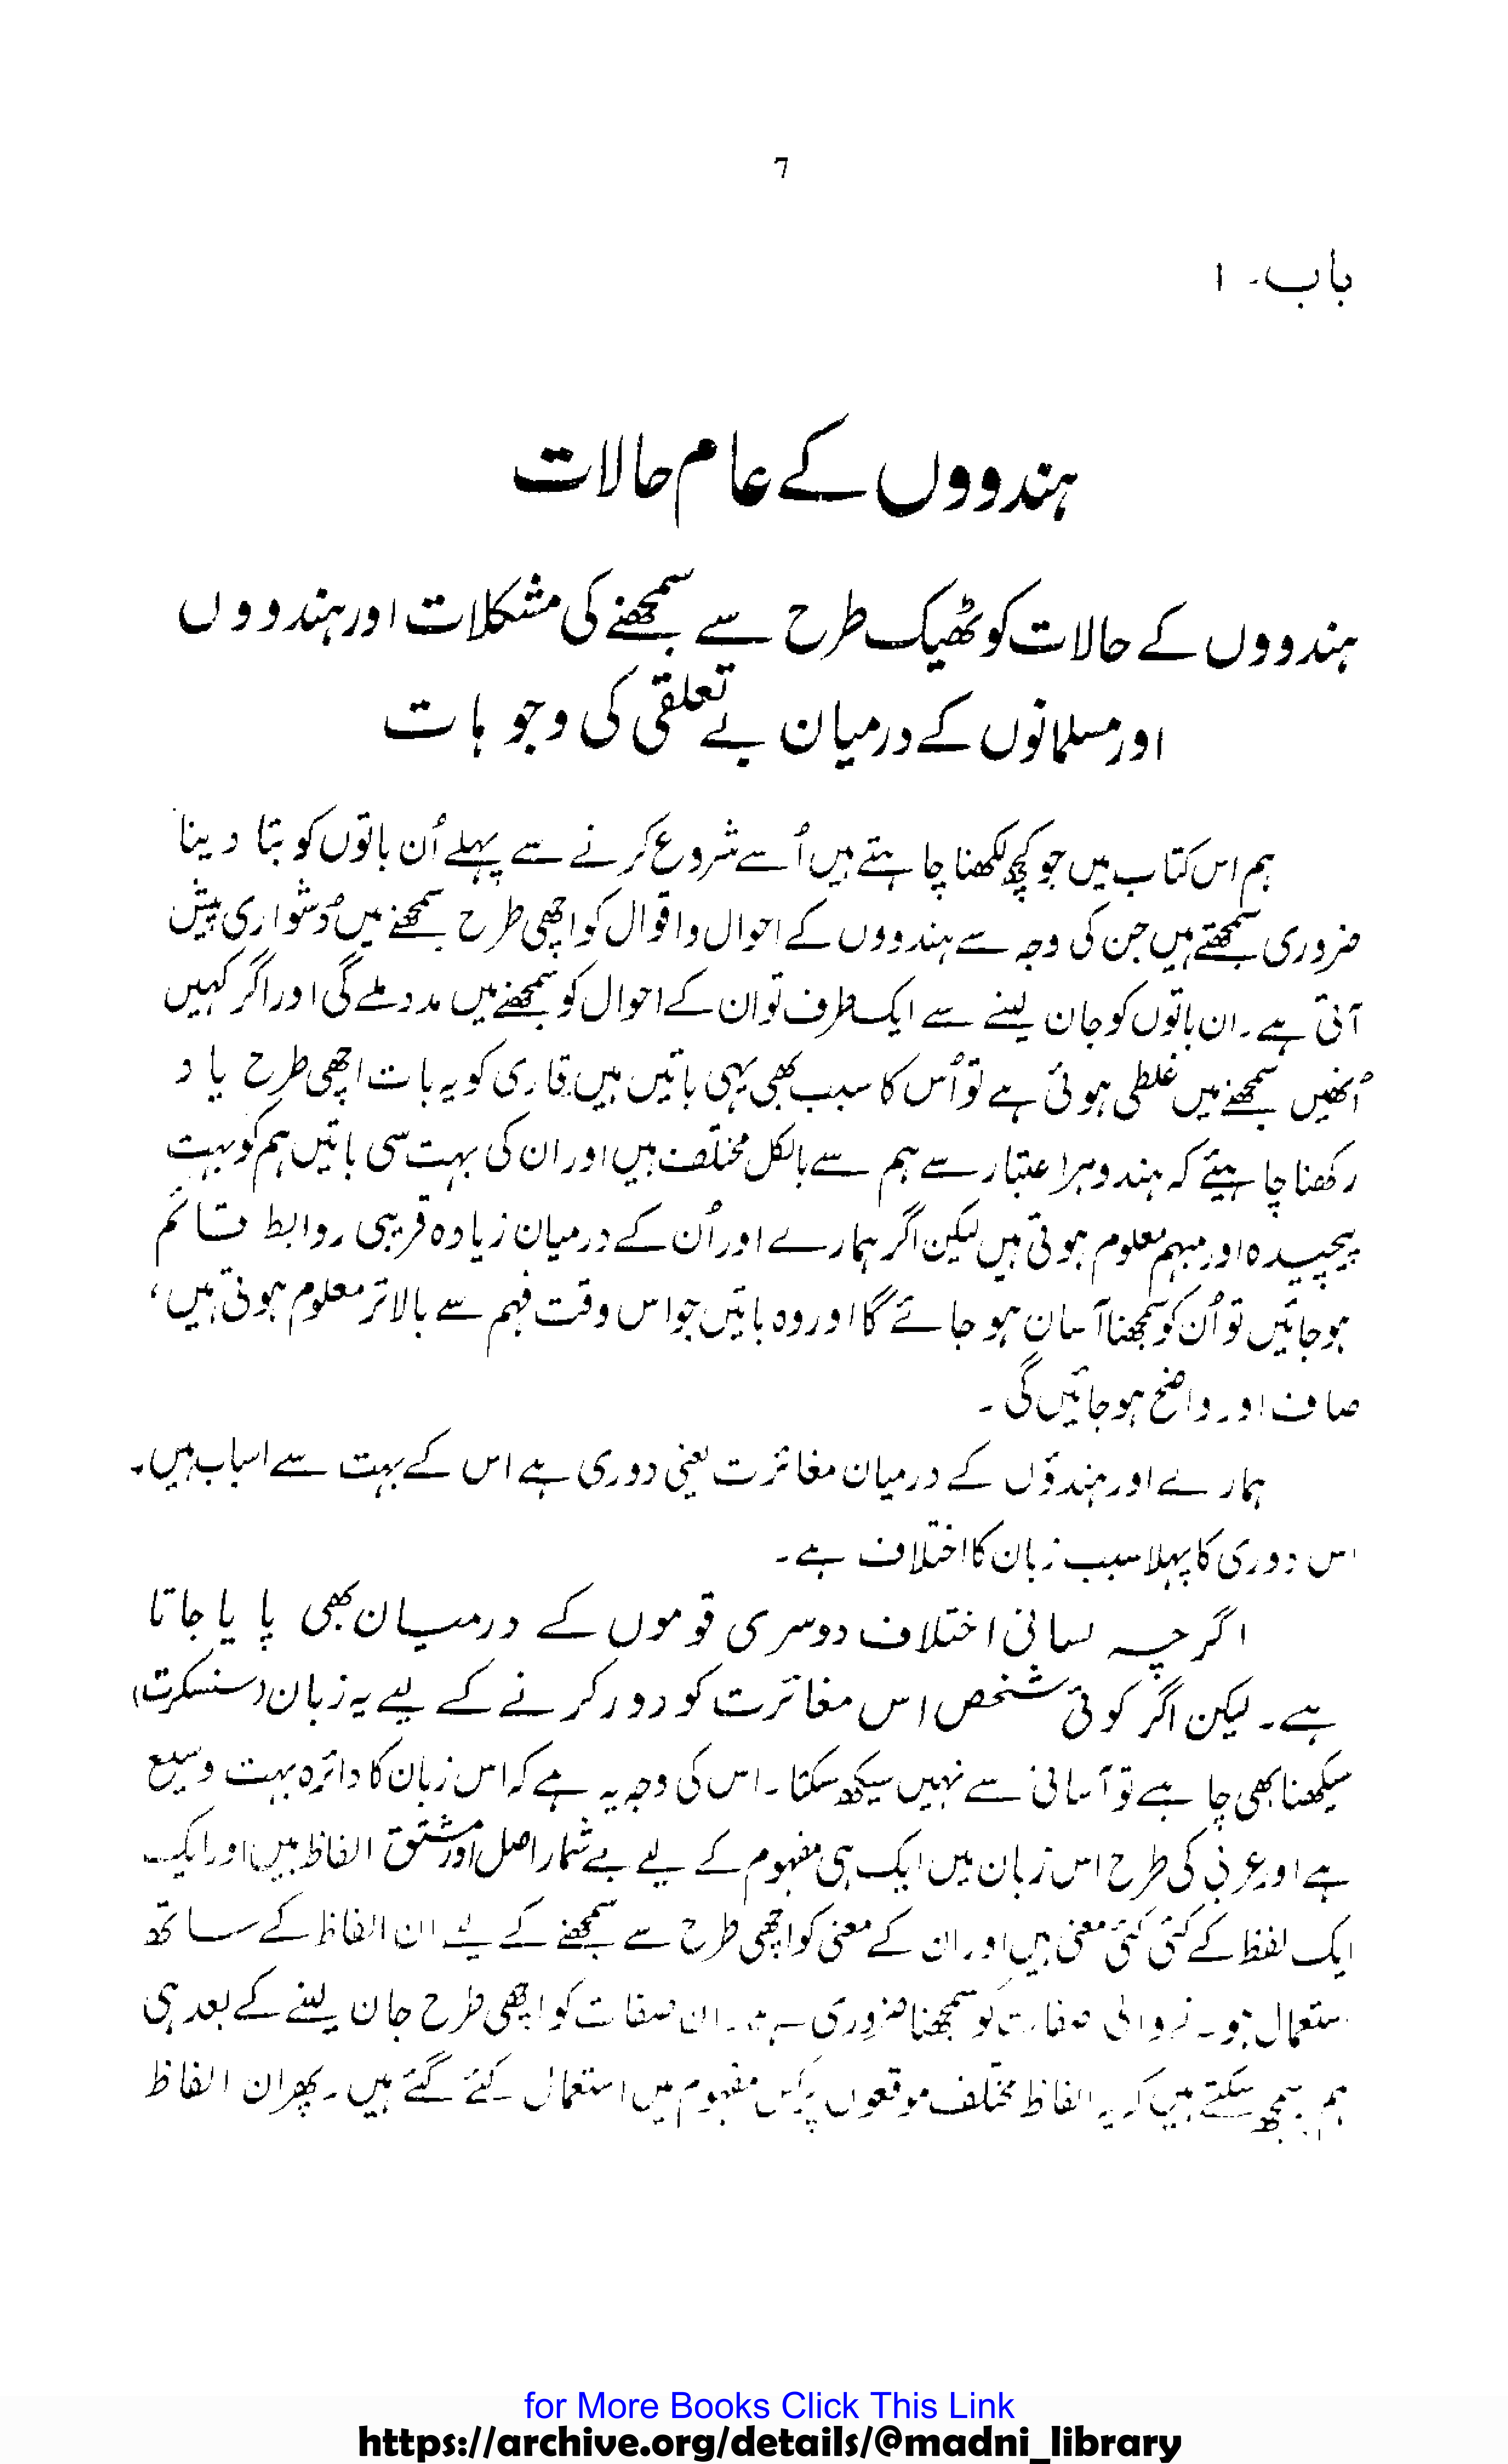 7
باب۔ ا
ہندووں کے عام حالات
ہندووں کے حالات کو ٹھیک طرح سے سمجھنے کی مشکلات اور ہندووں
اور مسلمانوں کے درمیان بے تعلقی کی وجوہات
ہم اس کتاب میں جو کچھ لکھنا چاہتے ہیں اُسے شروع کرنے سے پہلے اُن باتوں کو بتا دینا
ضروری سمجھتے ہیں جن کی وجہ سے ہندووں کے احوال و اقوال کو اچھی طرح سمجھنے میں دُشواری پیش
آتی ہے۔ ان باتوں کو جان لینے سے ایک طرف تو ان کے احوال کو سمجھنے میں مدد ملے گی اور اگر کہیں
اُنھیں سمجھنے میں غلطی ہوئی ہے تو اُس کا سبب بھی یہی باتیں ہیں قاری کو یہ بات اچھی طرح یاد
رکھنا چاہیئے کہ ہندو ہر اعتبار سے ہم سے بالکل مختلف ہیں اور ان کی بہت سی باتیں ہم کو بہت
پیچیدہ اور مبہم معلوم ہوتی ہیں لیکن اگر ہمارے اور اُن کے درمیان زیادہ قریبی روابط قائم
ہوجائیں تو اُن کو سمجھنا آسان ہو جائے گا اور وہ باتیں جو اس وقت فہم سے بالاتر معلوم ہوتی ہیں،
صاف اور واضح ہوجائیں گی۔
ہمارے اور ہندؤں کے درمیان مغائرت یعنی دوری ہے اس کے بہت سے اسباب ہیں۔
اس دوری کا پہلا سبب زبان کا اختلاف ہے۔
اگرچہ لسانی اختلاف دوسری قوموں کے درمیان بھی پایا جاتا
ہے۔ لیکن اگر کوئی شخص اس مغائرت کو دور کرنے کے لیے یہ زبان (سنسکرت)
سیکھنا بھی چاہے تو آسانی سے نہیں سیکھ سکتا۔ اس کی وجہ یہ ہے کہ اس زبان کا دائرہ بہت وسیع
ہے اور عربی کی طرح اس زبان میں ایک ہی مفہوم کے لیے بے شمار اصل اور مشتق الفاظ ہیں اور ایک
ایک لفظ کے کئی کئی معنی ہیں اور ان کے معنی کو اچھی طرح سے سمجھنے کے لیے ان الفاظ کے ساتھ
استعمال ہونے والی صفات کو سمجھنا ضروری ہے۔ ان صفات کو اچھی طرح جان لینے کے بعد ہی
ہم سمجھ سکتے ہیں کہ یہ الفاظ مختلف موقعوں پر کس مفہوم میں استعمال کئے گئے ہیں۔ پھر ان الفاظ
for More Books Click This Link
https://archive.org/details/@madni_library